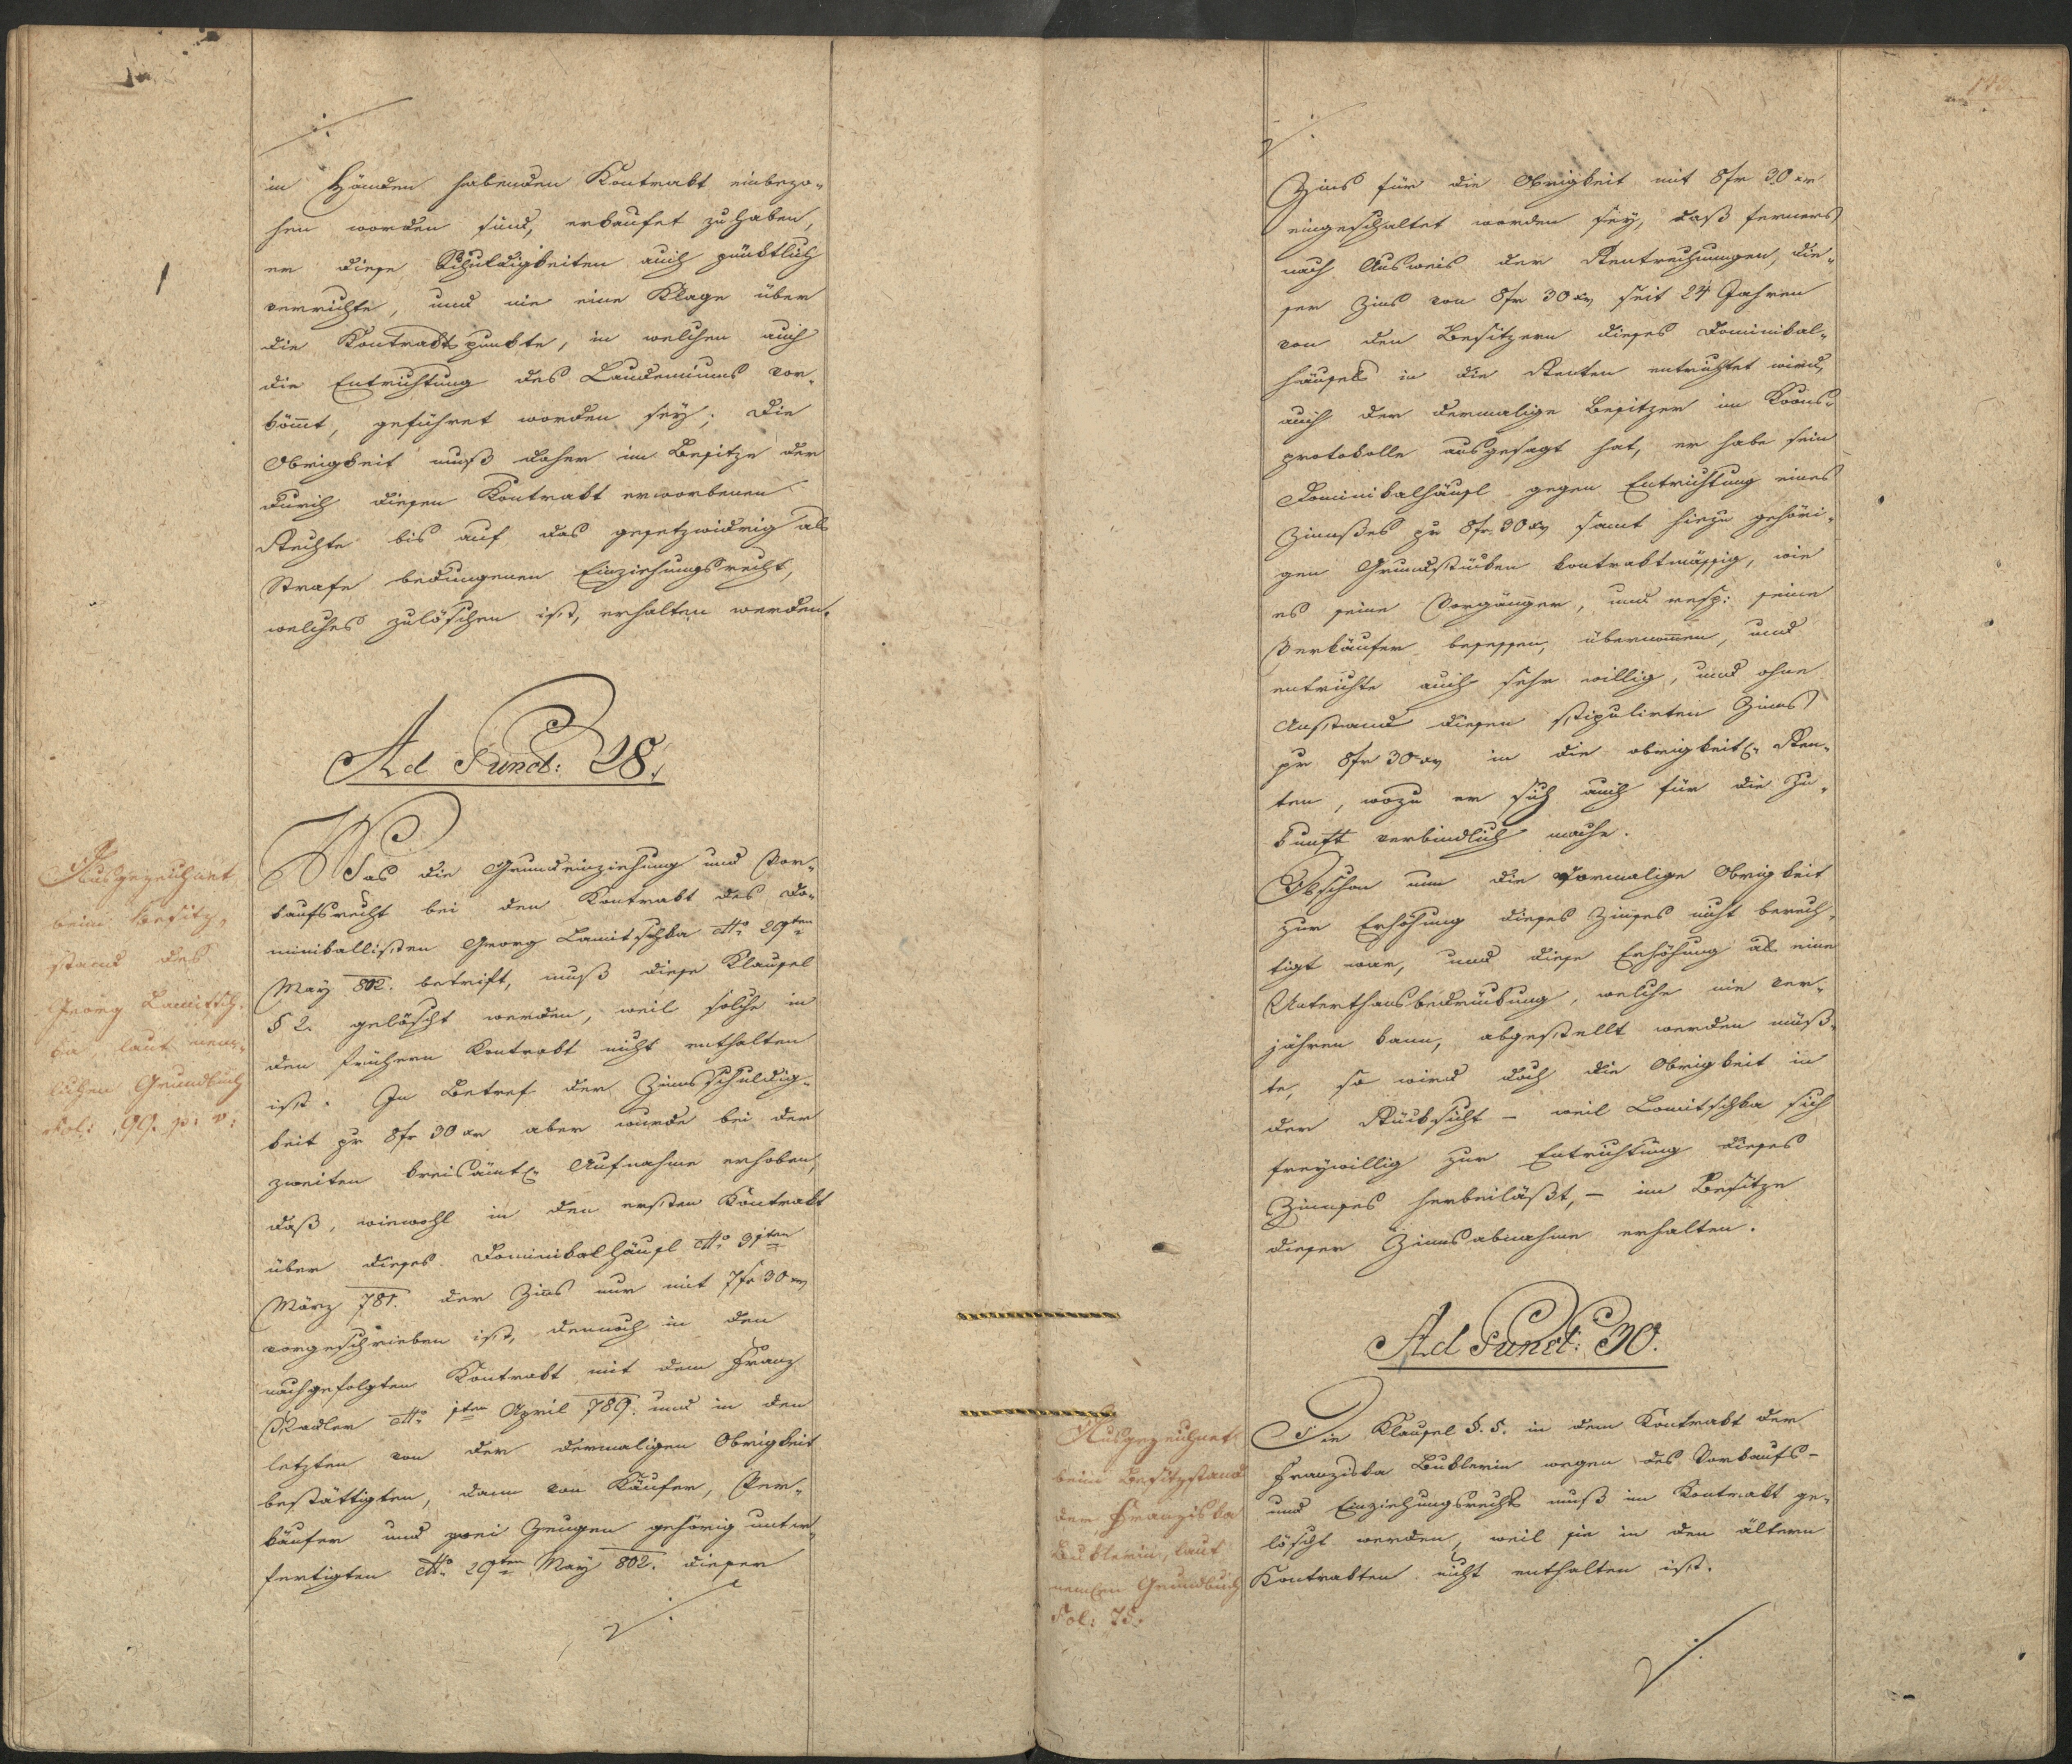 in Händen habenden Kontrakt einbezo-
hen worden sind, erkaufet zu haben,
er diese Schuldigkeiten auch pünktlich
verrichte, und nie eine Klage über
die Kontraktspunkte, in welchen auch
die Entrichtung des Laudemiums vor-
kömt, geführet worden sey; die
Obrigkeit muß daher im Besitze der
durch diesen Kontrakt erworbenen
Rechte bis auf das gesetzwidrig als
Strafe bedungenen Einziehungsrecht,
welches zulöschen ist, erhalten werden.
Ad Punct: 28.
Was die Grundeinziehung und Vor-
kaufsrecht bei den Kontrakt des Do-
minikallisten Georg Lamitschka dtto 29ten
May 802. betrift, muß diese Klausel
§ 2. gelöscht werden, weil solche in
den frühern Kontrakt nicht enthalten
ist. In Betref der Zinnsschuldig-
keit pr 8 fr 30 xr aber wurde bei der
zweiten kreisämtl. Aufnahme erhoben,
daß, wiewohl in den ersten Kontrakt
über dieses Dominikalhäusl dtto 31ten
März 781. der Zins nur mit 7 fr 30 xr
vorgeschrieben ist, dennoch in den
nachgefolgten Kontrakt mit dem Franz
Radler dtto 1ten April 789. und in den
letzten von der dermaligen Obrigkeit
bestättigten, dann von Käufer, Ver-
käufer und zwei Zeugen gehörig unter-
fertigten dtto 29ten May 802. dieser
Ausgezeichnet
beim Besitz-
stand des
Georg Lamitsch-
ka laut nem-
lichen Grundbuch
Fol: 99. p: v:
Zins für die Obrigkeit mit 8 fr 30 xr
eingeschaltet worden sey, daß ferners
nach Ausweis der Rentrechnungen, die-
ser Zins von 8 fr 30 xr seit 24 Jahren
von den Besitzern dieses Dominikal-
häusels in die Renten entrichtet wird,
auch der dermalige Besitzer im Kreis-
protokolle ausgesagt hat, er habe sein
Dominikalhäusl gegen Entrichtung eines
Zinnses pr 8 fr 30 xr samt hiezu gehöri-
gen Grundstücken kontraktmässig, wie
es seine Vorgänger, und resp: seine
Verkäufer besessen, übernommen, und
entrichte auch sehr willig, und ohne
Anstand diesen stipulirten Zinns
pr 8 fr 30 xr in die obrigkeitl. Ren-
ten, wozu er sich auch für die Zu-
kunft verbindlich mache.
Obschon nun die vormalige Obrigkeit
zur Erhöhung dieses Zinses nicht berech-
tigt war, und diese Erhöhung als eine
Unterthansbedrückung, welche nie ver-
jähren kann, abgestellt werden müß-
te, so wird doch die Obrigkeit in
der Rücksicht – weil Lamitschka sich
freywillig zur Entrichtung dieses
Zinnses herbeiläßt, – im Besitze
dieser Zinnsabnahme erhalten.
Ad Punct: 30.
Die Klausel §. 5. in dem Kontrakt der
Franziska Buklerin wegen des Vorkaufs-
und Einziehungsrechts muß im Kontrakt ge-
löscht werden, weil sie in den ältern
Kontrakten nicht enthalten ist.
Ausgezeichnet
beim Besitzstand
der Franziska
Buklerin, laut
nemlen Grundbuch
Fol: 75.